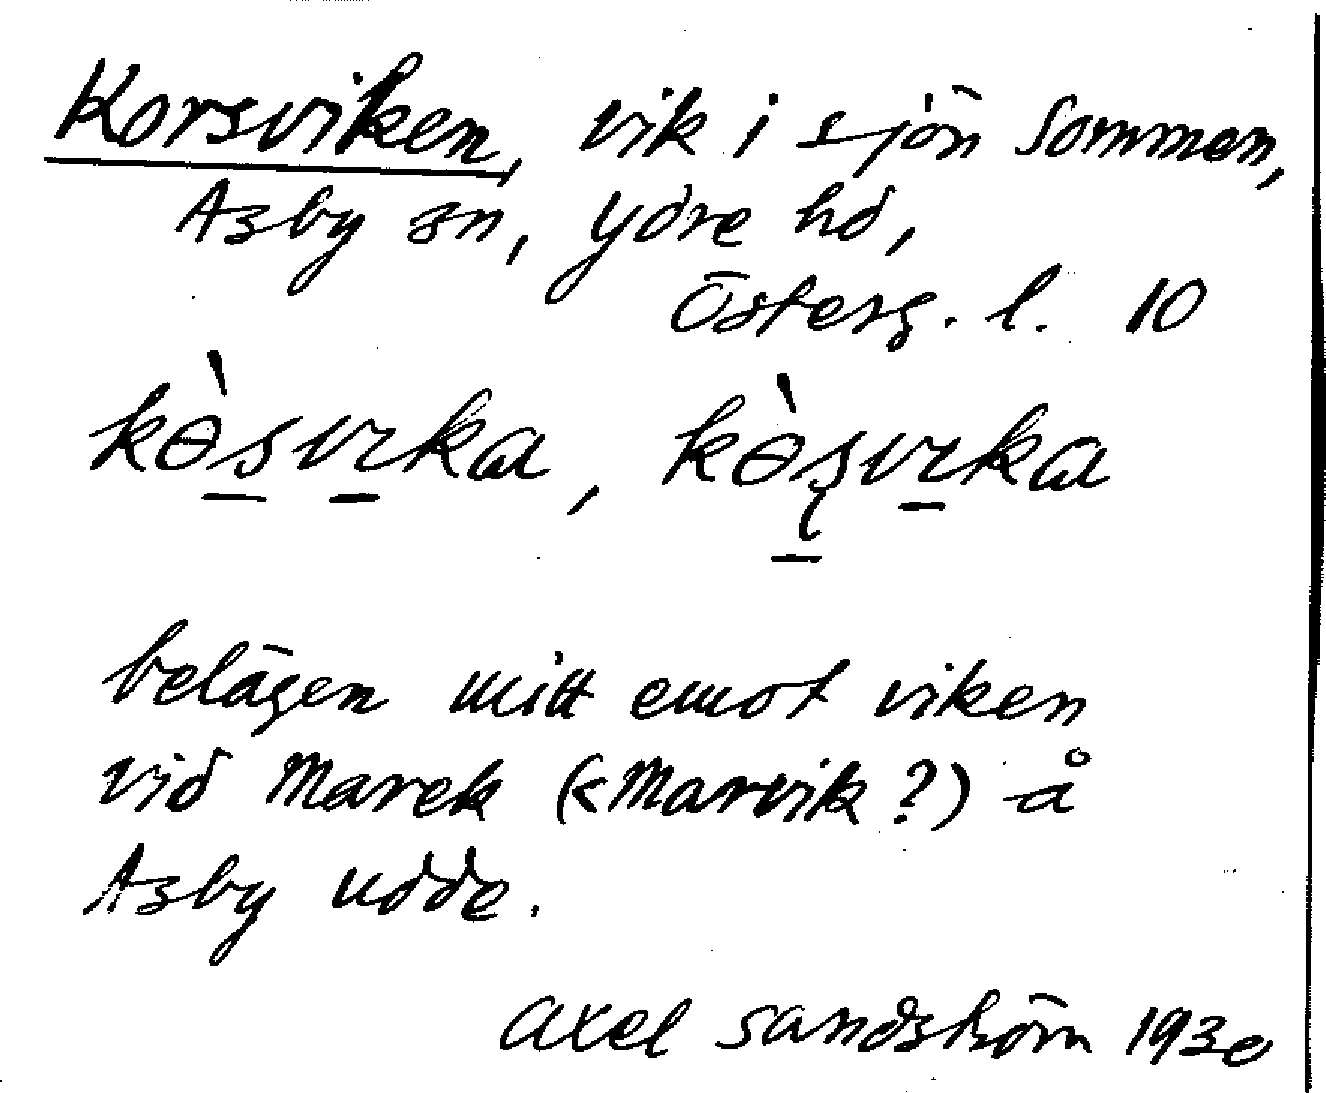 Korsviken, vik i sjön Sommen,
Asby sn, Ydre hd,
Österg. l. 10
kɵ̀s̱vɪ̱ka, kɵ̀ʂ̱vɪ̱ka
belägen mitt emot viken
vid Marek (< Marvik?) å
Asby udde.
Axel Sandström 1930